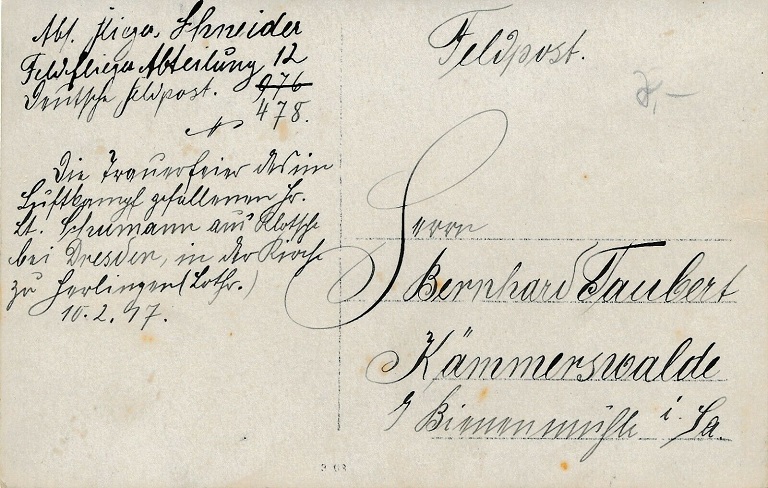 Abs. Flieger Schneider
Feldflieger Abteilung 12
Deutsche Feldpost. 976
478.
Die Trauerfeier des im
Luftkampf gefallenen Hr.
Lt. Schumann aus Klotsche
bei Dresden, in der Kirche
zu Herlingen (Lothr.)
10.2.17.
Feldpost.
Herrn
Bernhard Taubert
Kämmerswalde
Bienenmühle i. Sa.